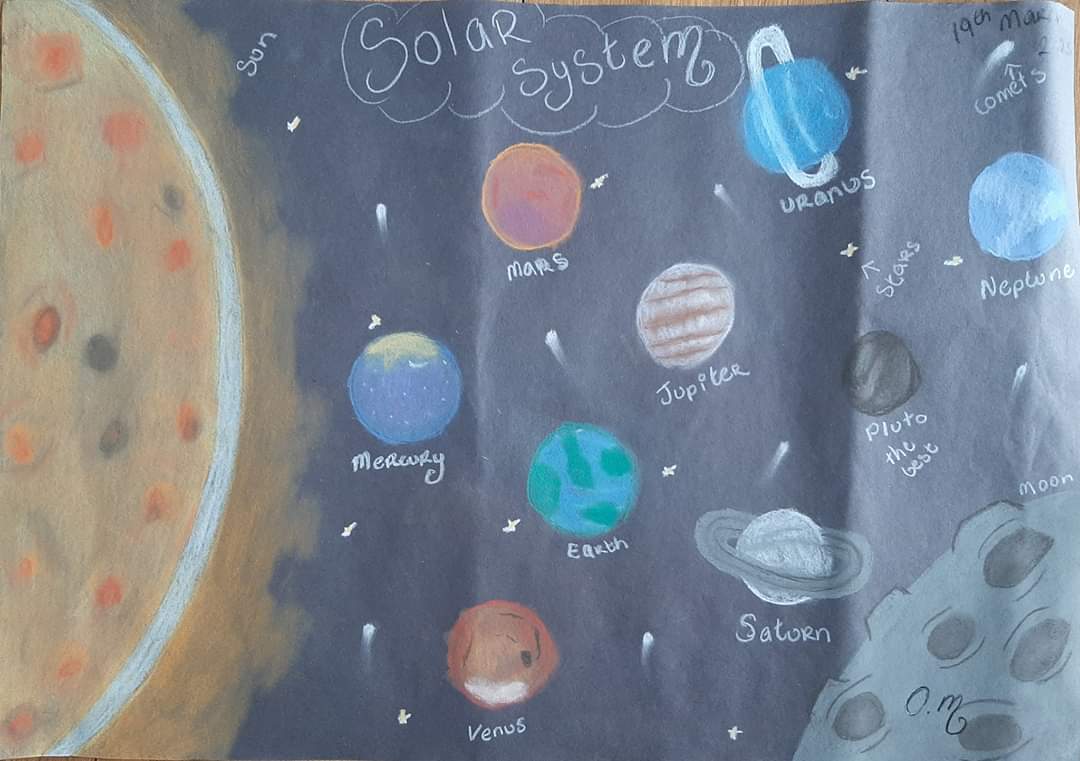 Sun
Solar
System
19th Mar
Comets
Uranus
Mars
Neptune
Stars
Jupiter
Mercury
Pluto
the
best
Earth
Moon
Saturn
Venus
O.M